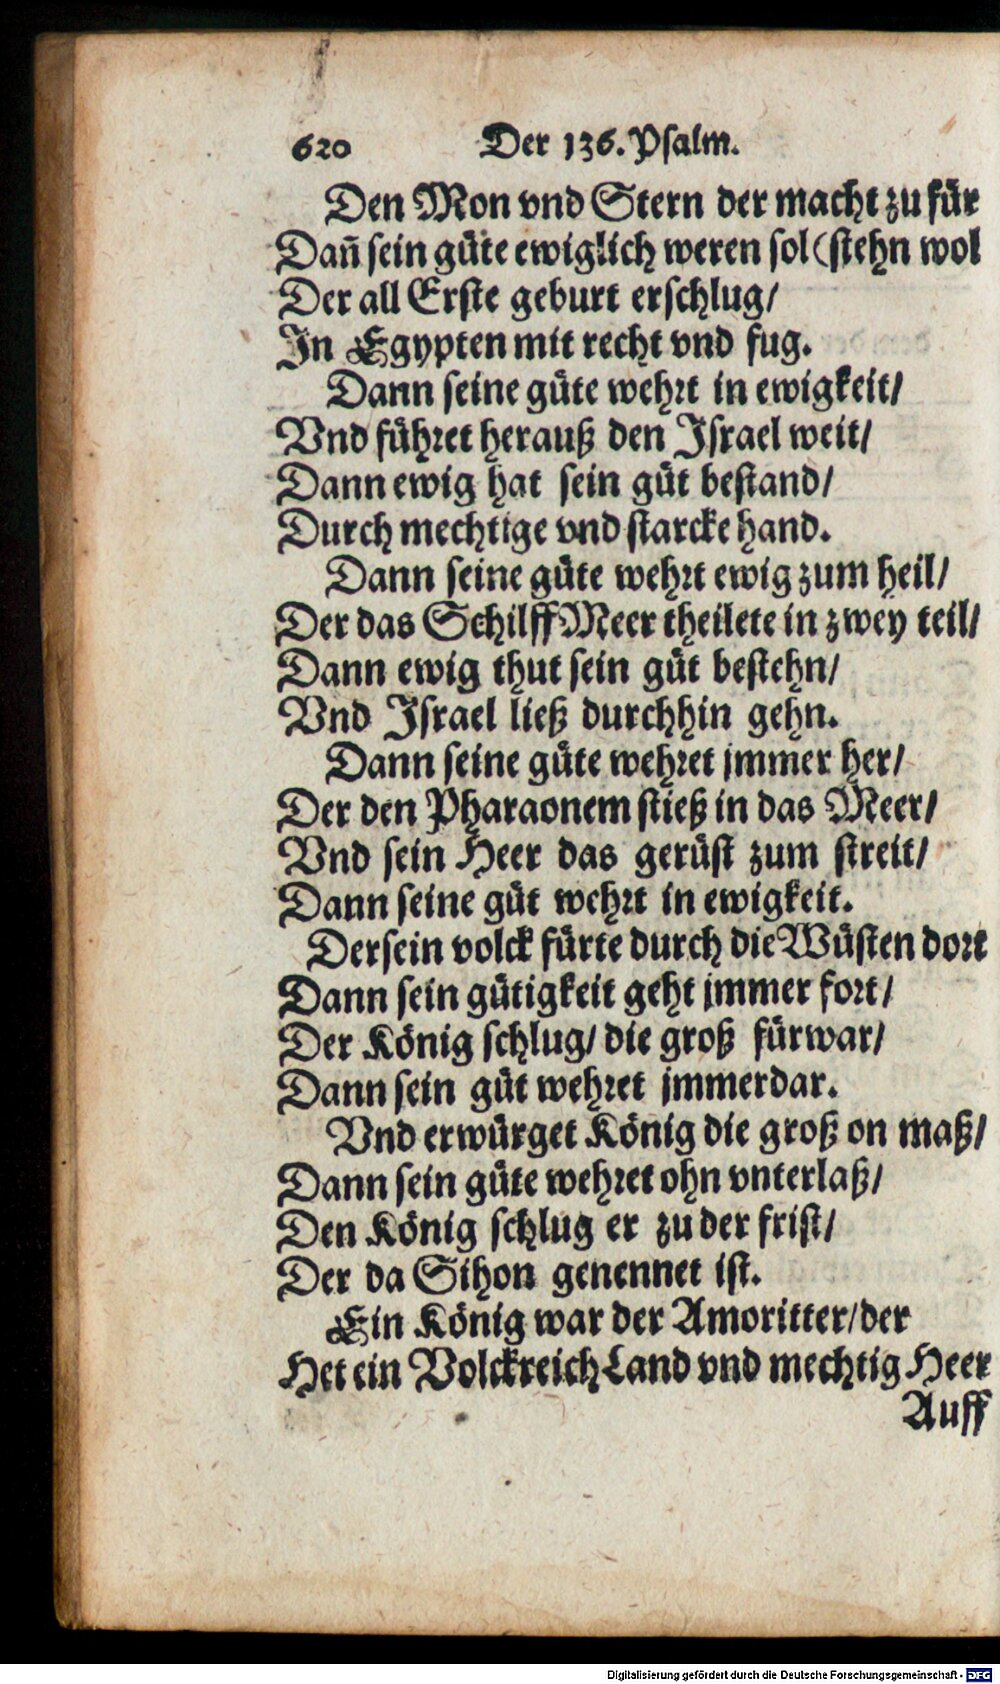 620 Der 136. Psalm.
Den Mon vnd Stern der macht zu für
Dañ sein güte ewiglich weren sol (stehn wol
Der all Erste geburt erschlug/
In Egypten mit recht vnd fug.
Dann seine güte wehrt in ewigkeit/
Vnd führet herauß den Israel weit/
Dann ewig hat sein güt bestand/
Durch mechtige vnd starcke hand.
Dann seine güte wehrt ewig zum heil/
Der das Schilff Meer theilete in zwey teil/
Dann ewig thut sein güt bestehn/
Vnd Israel ließ durchhin gehn.
Dann seine güte wehret jmmer her/
Der den Pharaonem stieß in das Meer/
Vnd sein Heer das gerüst zum streit/
Dann seine güt wehrt in ewigkeit.
Dersein volck fürte durch die Wüsten dort
Dann sein gütigkeit geht jmmer fort/
Der König schlug/ die groß fürwar/
Dann sein güt wehret jmmerdar.
Vnd erwürget König die groß on maß/
Dann sein güte wehret ohn vnterlaß/
Den König schlug er zu der frist/
Der da Sihon genennet ist.
Ein König war der Amoritter/der
Het ein Volckreich Land vnd mechtig Heer
Auff
Digitalisierung gefördert durch die Deutsche Forschungsgemeinschaft - DFG